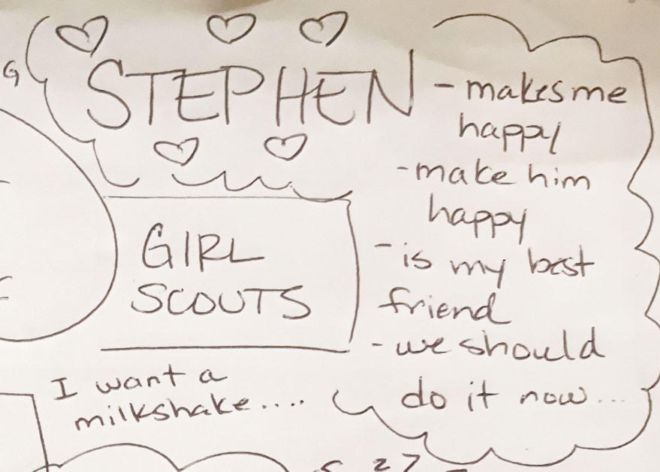 G
STEPHEN
- makes me
happy
- make him
happy
- is my best
friend
- we should
do it now...
GIRL
SCOUTS
I want a
milkshake....